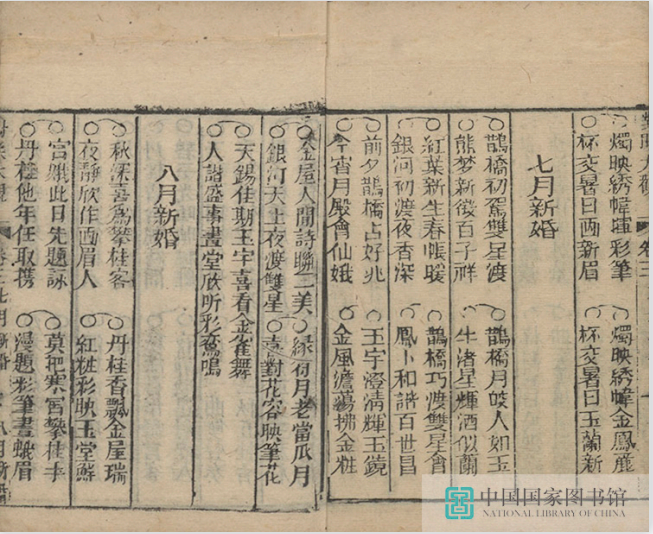 燭映綉幃暉彩筆 燭映綉幃金鳳麗
杯交暑日画新眉 杯交暑日玉蘭新
七月新婚
鵲橋初駕雙星渡 鵲橋月皎人如玉
熊夢新徵百子祥 牛渚星輝酒似蘭
紅葉新生春帳暖 鵲橋巧渡雙星會
銀河初渡夜香深 鳳卜和諧百世昌
前夕鵲橋占好兆 玉宇澄清輝玉鏡
今宵月殿會仙娥 金風澹蕩拂金粧
金屋人間詩聯二美 綠窗月老當瓜月
銀河天上夜渡雙星 喜對花容映筆花
天錫佳期玉宇喜看金雀舞
人諧盛事畫堂欣听彩鸞鳴
八月新婚
秋深喜爲攀桂客 丹桂香飄金屋瑞
夜靜欣作画眉人 紅粧彩映玉堂鮮
宮娥此日先題詠 莫把寒宮攀桂手
丹桂他年任取携 漫題彩筆畫蛾眉
中国国家图书馆
NATIONAL LIBRARY OF CHINA